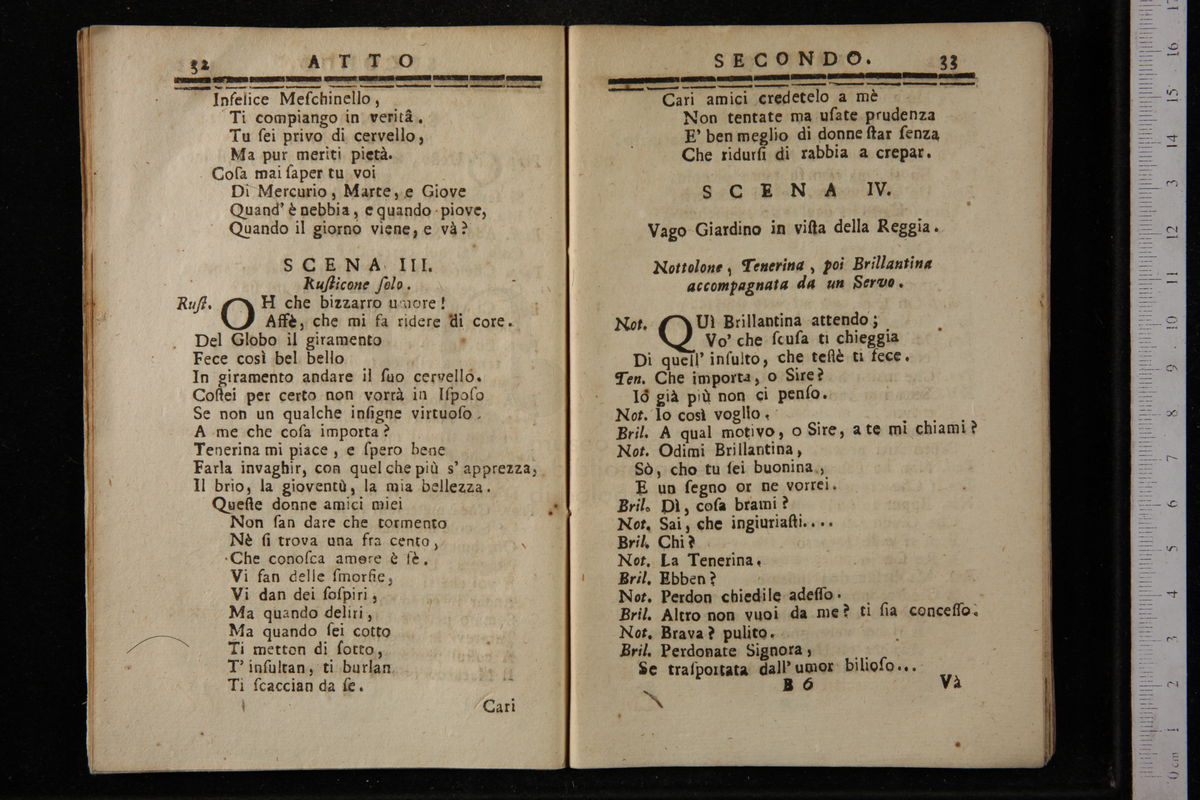 32 ATTO
Infelice Meſchinello,
Ti compiango in verità.
Tu ſei privo di cervello,
Ma pur meriti pietà.
Coſa mai ſaper tu voi
Di Mercurio, Marte, e Giove
Quand' è nebbia, e quando piove,
Quando il giorno viene, e và?
SCENA III.
Ruſticone ſolo.
Ruſt. OH che bizzarro umore!
Affè, che mi fa ridere di core.
Del Globo il giramento
Fece così bel bello
In giramento andare il ſuo cervello.
Coſtei per certo non vorrà in Iſpoſo
Se non un qualche inſigne virtuoſo.
A me che coſa importa?
Tenerina mi piace, e ſpero bene
Farla invaghir, con quel che più s' apprezza,
Il brio, la gioventù, la mia bellezza.
Queſte donne amici miei
Non ſan dare che tormento
Nè ſi trova una fra cento,
Che conoſca amore è fè.
Vi fan delle ſmorfie,
Vi dan dei ſoſpiri,
Ma quando deliri,
Ma quando ſei cotto
Ti metton di ſotto,
T' inſultan, ti burlan
Ti ſcaccian da ſe.
Cari
SECONDO. 33
Cari amici credetelo a mè
Non tentate ma uſate prudenza
E' ben meglio di donne ſtar ſenza
Che ridurſi di rabbia a crepar.
SCENA IV.
Vago Giardino in viſta della Reggia.
Nottolone, Tenerina, poi Brillantina
accompagnata da un Servo.
Not. QUì Brillantina attendo;
Vo' che ſcuſa ti chieggia
Di queſl' inſulto, che teſtè ti fece.
Ten. Che importa, o Sire?
Io già più non ci penſo.
Not. Io così voglio.
Bril. A qual motivo, o Sire, a te mi chiami?
Not. Odimi Brillantina,
Sò, cho tu ſei buonina,
E un ſegno or ne vorrei.
Bril. Dì, coſa brami?
Not. Sai, che ingiuriaſti....
Bril. Chi?
Not. La Tenerina.
Bril. Ebben?
Not. Perdon chiedile adeſſo.
Bril. Altro non vuoi da me? ti ſia conceſſo.
Not. Brava? pulito.
Bril. Perdonate Signora,
Se traſportata dall' umor bilioſo...
B 6 Và
0 cm 1 2 3 4 5 6 7 8 9 10 11 12 13 14 15 16 17